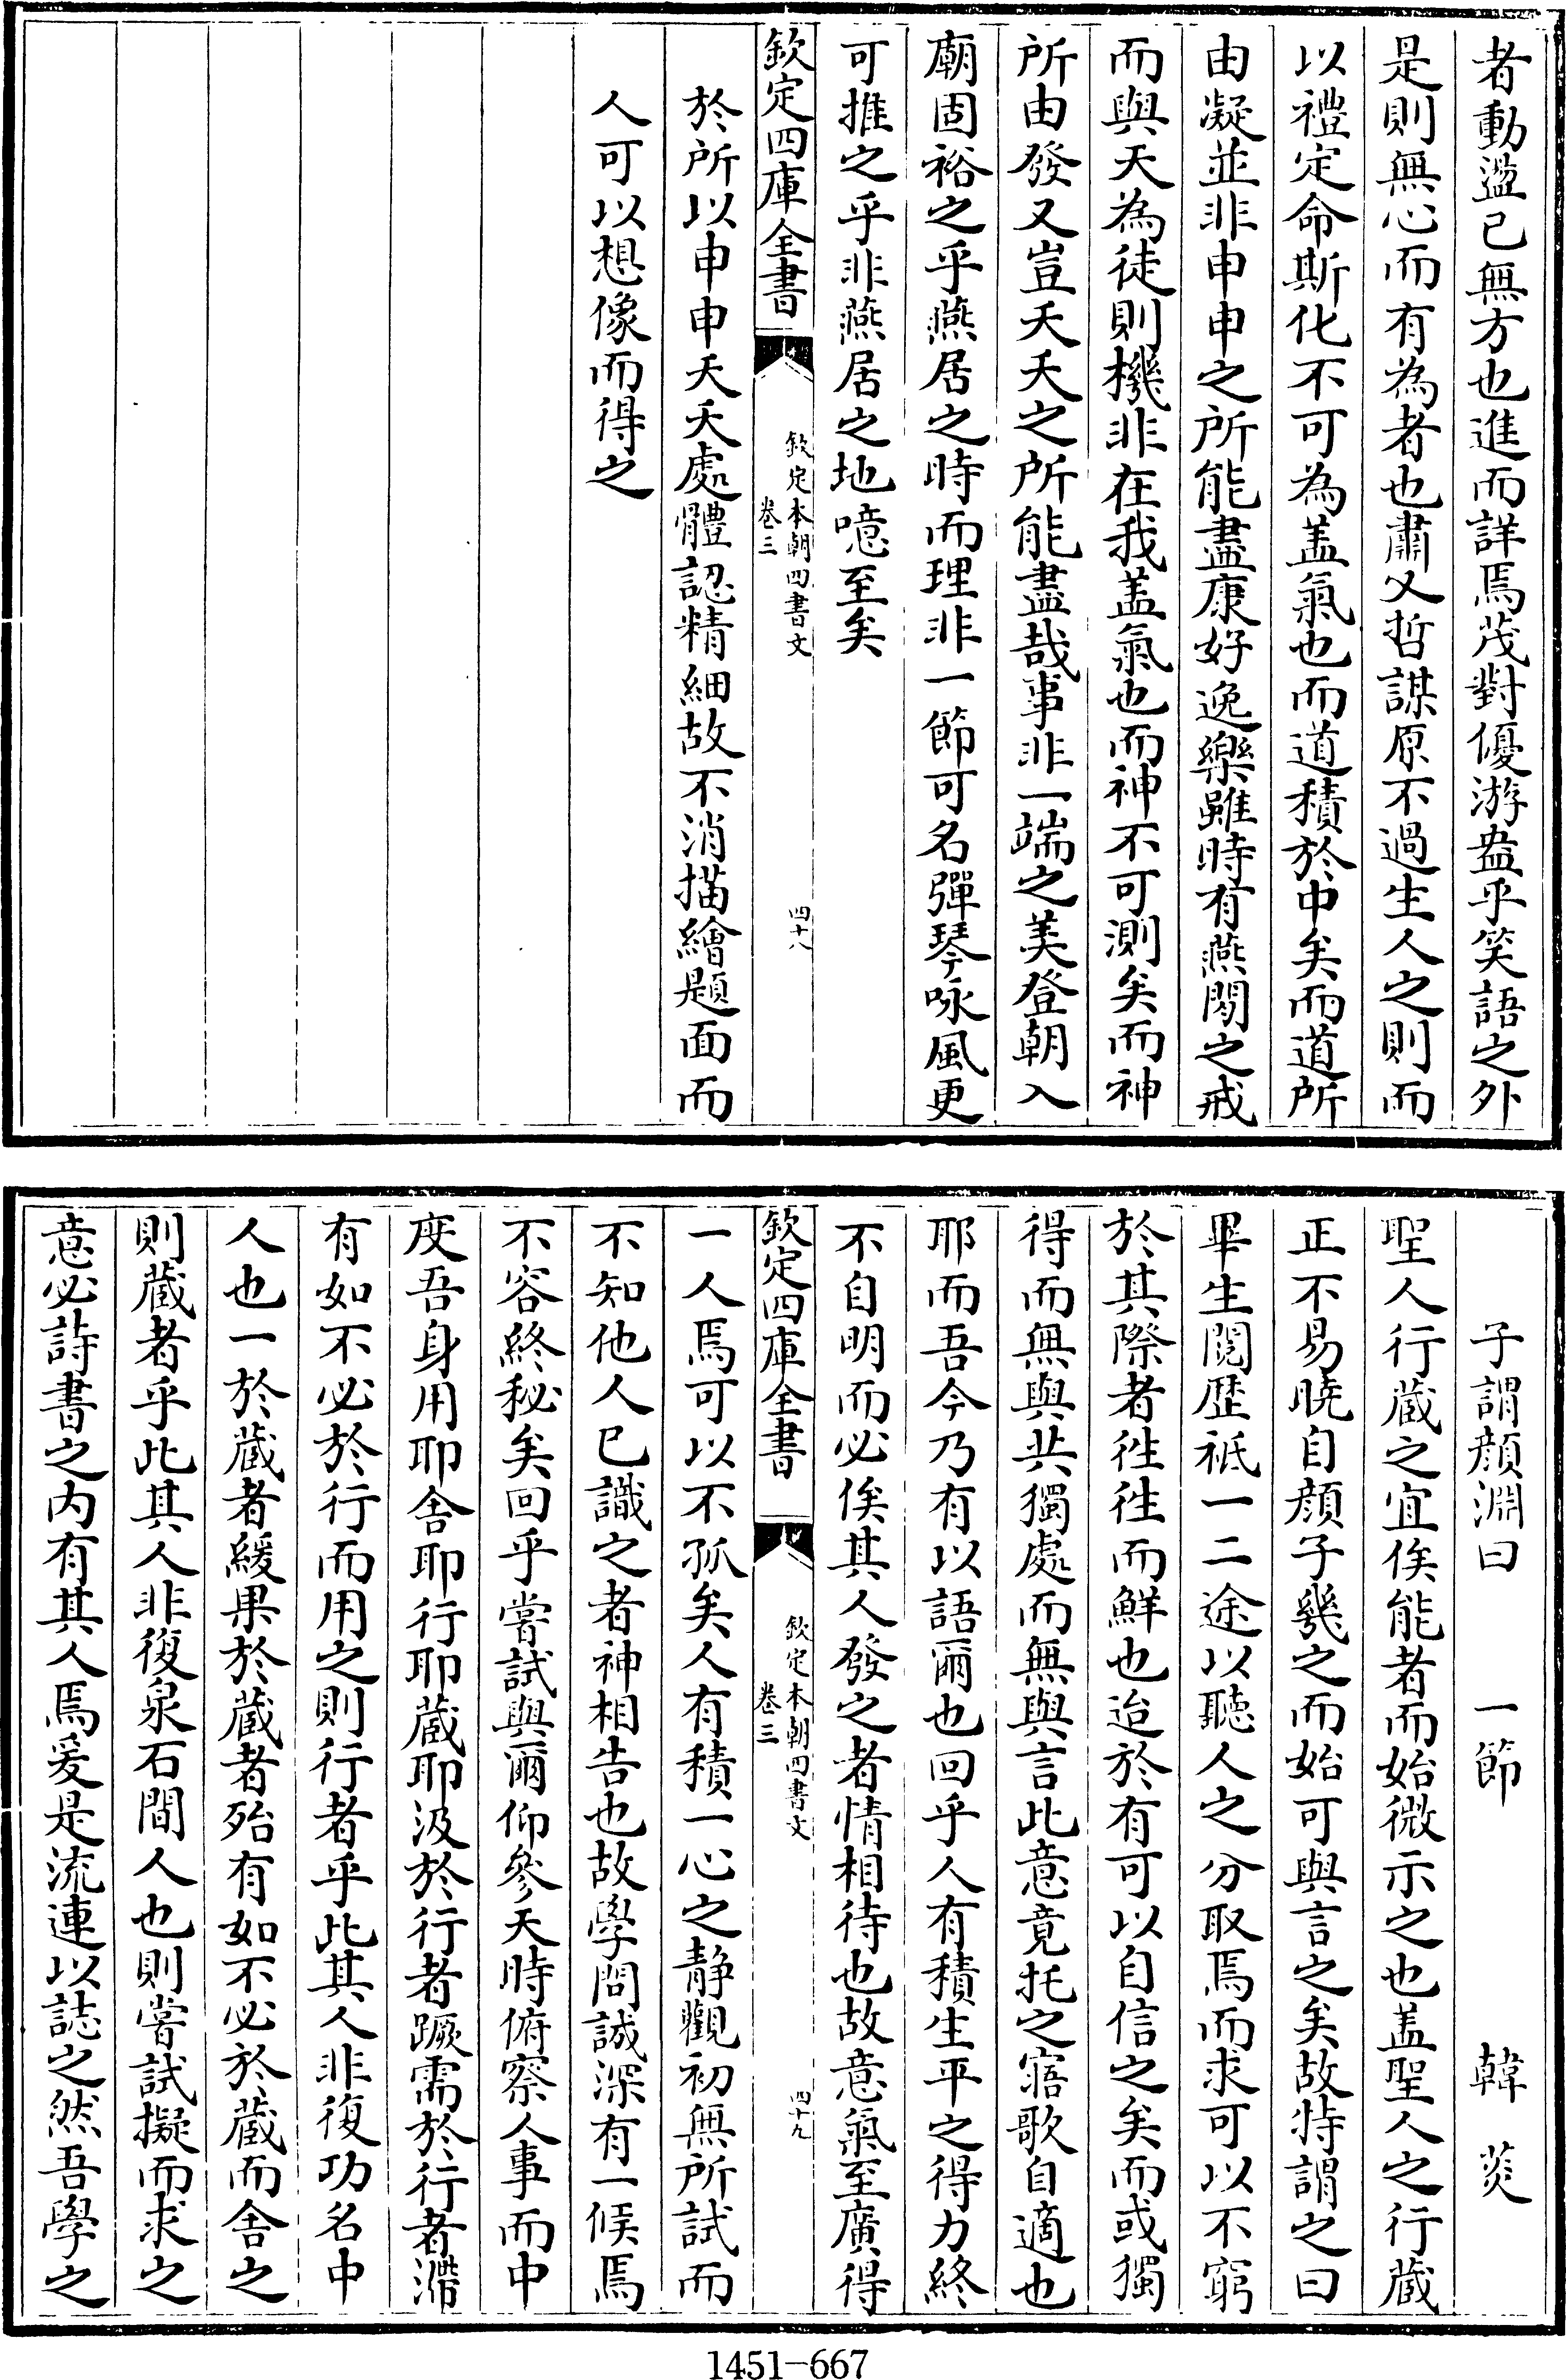 者動盪已無方也進而詳焉茂對優游盎乎笑語之外
是則無心而有為者也肅乂哲謀原不過生人之則而
以禮定命斯化不可為盖氣也而道積於中矣而道所
由凝並非申申之所能盡康好逸樂雖時有燕閒之戒
而與天為徒則機非在我盖氣也而神不可測矣而神
所由發又豈夭夭之所能盡哉事非一端之美登朝入
廟固裕之乎燕居之時而理非一節可名彈琴咏風更
可推之乎非燕居之地噫至矣
欽定四庫全書
欽定本朝四書文
卷三
四十八
於所以申申夭夭處體認精細故不消描繪題面而
人可以想像而得之
子謂顔淵曰 一節 韓菼
聖人行蔵之宜俟能者而始微示之也盖聖人之行蔵
正不易曉自顔子幾之而始可與言之矣故特謂之曰
畢生閱歴祗一二途以聽人之分取焉而求可以不窮
於其際者徃徃而鮮也迨於有可以自信之矣而或獨
得而無與共獨處而無與言此意竟托之寤歌自適也
耶而吾今乃有以語爾也回乎人有積生平之得力終
不自明而必俟其人發之者情相待也故意氣至廣得
欽定四庫全書
欽定本朝四書文
卷三
四十九
一人焉可以不孤矣人有積一心之静觀初無所試而
不知他人已識之者神相告也故學問誠深有一候焉
不容終秘矣回乎嘗試與爾仰參天時俯察人事而中
度吾身用耶舍耶行耶蔵耶汲於行者蹶需於行者滯
有如不必於行而用之則行者乎此其人非復功名中
人也一於蔵者緩果於蔵者殆有如不必於蔵而舍之
則蔵者乎此其人非復泉石間人也則嘗試擬而求之
意必詩書之内有其人焉爰是流連以誌之然吾學之
1451-667